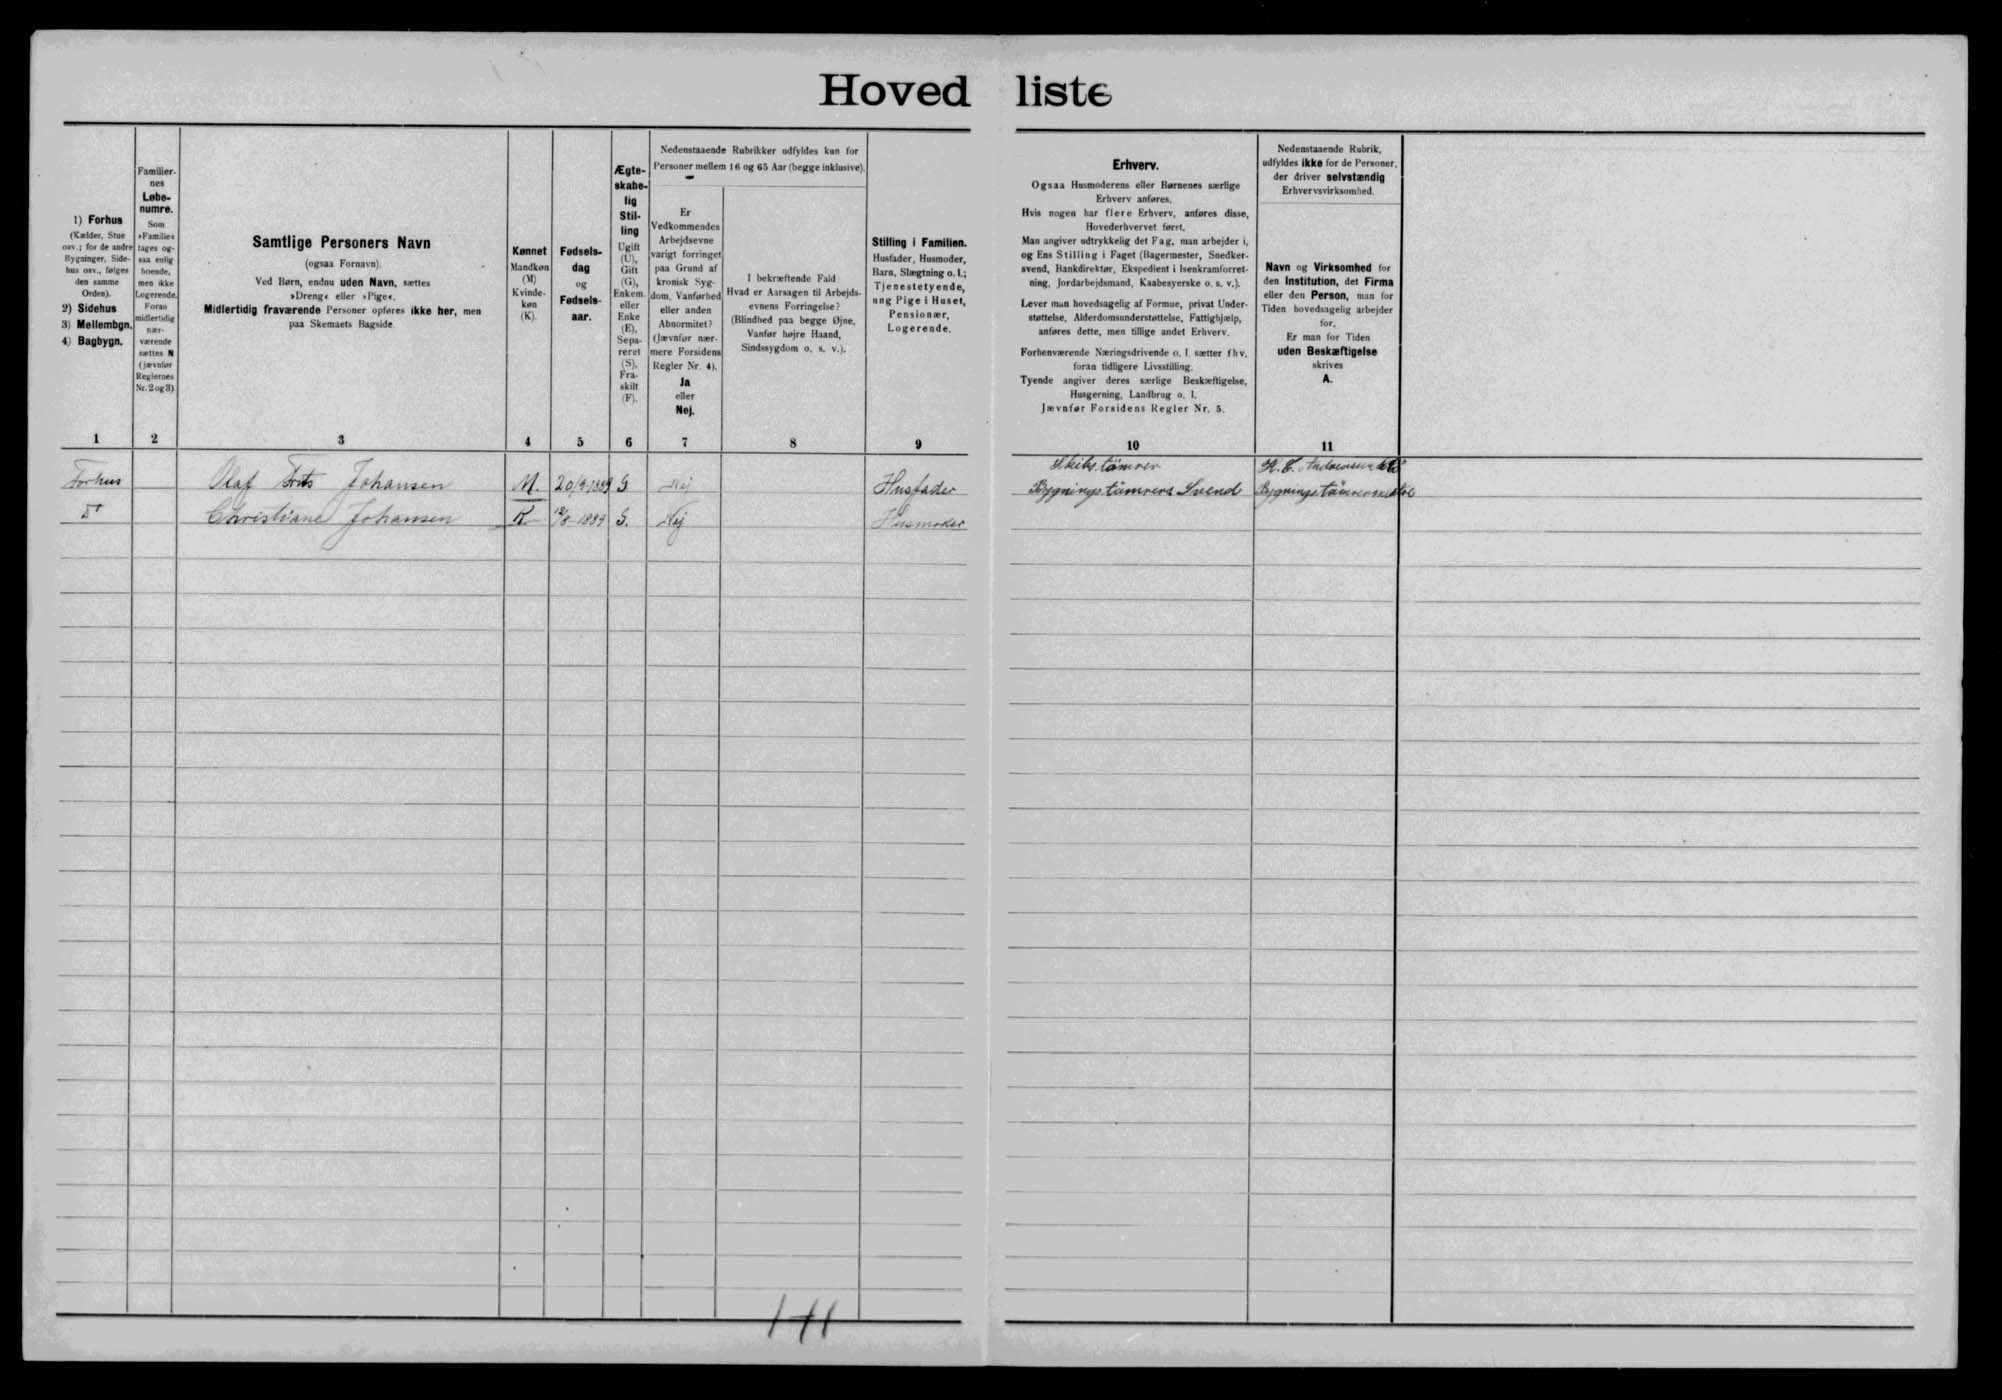 Hovedliste
1) Forhus
(Kælder, Stue
osv.; for de andre
Bygninger, Side-
hus osv., følges
den samme
Orden).
2) Sidehus
3) Mellembgn.
4) Bagbygn.
Familier-
nes
Løbe-
numre.
Som
»Familie«
tages og-
saa enlig
boende,
men ikke
Logerende.
Foran
midlertidig
nær-
værende
sættes N
(jævnfør
Reglernes
Nr. 2 og 3).
Samtlige Personers Navn
(ogsaa Fornavn).
Ved Børn, endnu uden Navn, sættes
»Dreng« eller »Pige«.
Midlertidig fraværende Personer opføres ikke her, men
paa Skemaets Bagside.
Kønnet
Mandkøn
(M)
Kvinde-
køn
(K).
Fødsels-
dag
og
Fødsels-
aar.
Ægte-
skabe-
lig
Stil-
ling
Ugift
(U),
Gift
(G),
Enkem.
eller
Enke
(E),
Sepa-
reret
(S),
Fra-
skilt
(F).
Nedenstaaende Rubrikker udfyldes kun for
Personer mellem 16 og 65 Aar (begge inklusive).
Er
Vedkommendes
Arbejdsevne
varigt forringet
paa Grund af
kronisk Syg-
dom, Vanførhed
eller anden
Abnormitet?
(Jævnfør nær-
mere Forsidens
Regler Nr. 4).
Ja
eller
Nej.
I bekræftende Fald
Hvad er Aarsagen til Arbejds-
evnens Forringelse?
(Blindhed paa begge Øjne,
Vanfør højre Haand,
Sindssygdom o. s. v.).
Stilling i Familien.
Husfader, Husmoder,
Barn, Slægtning o. l.;
Tjenestetyende,
ung Pige i Huset,
Pensionær,
Logerende.
Erhverv.
Ogsaa Husmoderens eller Børnenes særlige
Erhverv anføres.
Hvis nogen har flere Erhverv, anføres disse,
Hovederhvervet først.
Man angiver udtrykkelig det Fag, man arbejder i,
og Ens Stilling i Faget (Bagermester, Snedker-
svend, Bankdirektør, Ekspedient i Isenkramforret-
ning, Jordarbejdsmand, Kaabesyerske o. s. v.).
Lever man hovedsagelig af Formue, privat Under-
støttelse, Alderdomsunderstøttelse, Fattighjælp,
anføres dette, men tillige andet Erhverv.
Forhenværende Næringsdrivende o. l. sætter fhv.
foran tidligere Livsstilling.
Tyende angiver deres særlige Beskæftigelse,
Husgerning, Landbrug o. l.
Jævnfør Forsidens Regler Nr. 5.
Nedenstaaende Rubrik,
udfyldes ikke for de Personer,
der driver selvstændig
Erhvervsvirksomhed.
Navn og Virksomhed for
den Institution, det Firma
eller den Person, man for
Tiden hovedsagelig arbejder
for.
Er man for Tiden
uden Beskæftigelse
skrives
A.
1 2 3 4 5 6 7 8 9 10 11
Skibstömrer
Forhus Olaf Johansen M. 20/9-1889 G Nej Husfader Bygningstömrer Svend Bygningstömrermestre
Do Christiane Johansen K 1889 G. Nej Husmoder
1+1